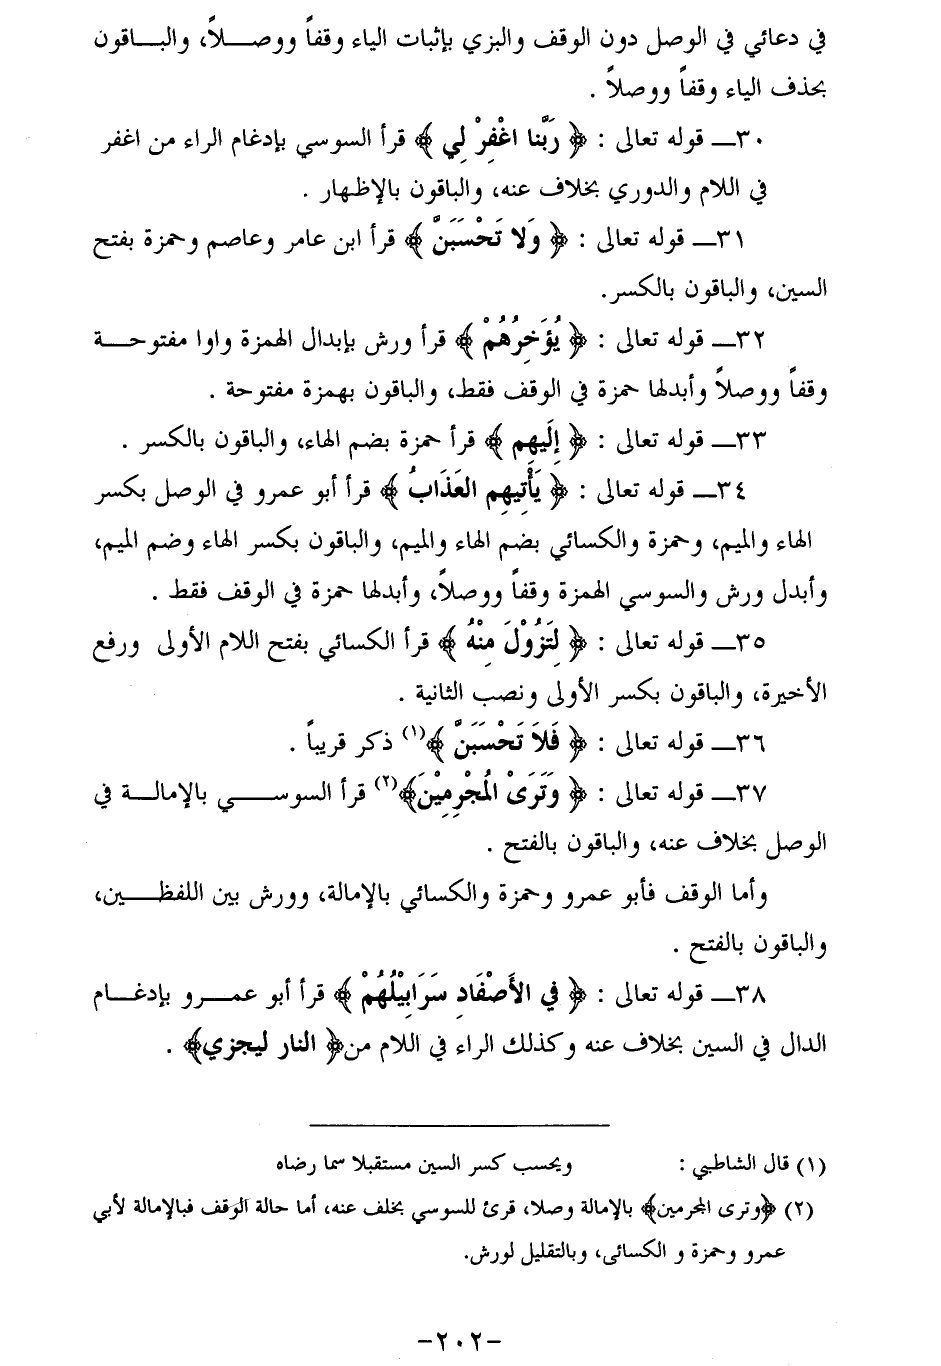 في دعائي في الوصل دون الوقف والبزي بإثبات الياء وقفاً ووصـــلاً، والبـــاقون
بحذف الياء وقفاً ووصلاً .
٣٠ــ قوله تعالى : ﴿ رَبَّنا اغْفِرْ لِي ﴾ قرأ السوسي بإدغام الراء من اغفر
في اللام والدوري بخلاف عنه، والباقون بالإظهار .
٣١ــ قوله تعالى : ﴿ وَلا تَحْسَبَنَّ ﴾ قرأ ابن عامر وعاصم وحمزة بفتح
السين، والباقون بالكسر.
٣٢ــ قوله تعالى : ﴿ يُؤَخِرُهُمْ ﴾ قرأ ورش بإبدال الهمزة واوا مفتوحـــة
وقفاً ووصلاً وأبدلها حمزة في الوقف فقط، والباقون بهمزة مفتوحة .
٣٣ــ قوله تعالى : ﴿ إِلَيهِم ﴾ قرأ حمزة بضم الهاء، والباقون بالكسر .
٣٤ــ قوله تعالى : ﴿ يَأْتِيهِم العَذَابُ ﴾ قرأ أبو عمرو في الوصل بكسر
الهاء والميم، وحمزة والكسائي بضم الهاء والميم، والباقون بكسر الهاء وضم الميم،
وأبدل ورش والسوسي الهمزة وقفاً ووصلاً، وأبدلها حمزة في الوقف فقط .
٣٥ــ قوله تعالى : ﴿ لِتَزُوْلَ مِنْهُ ﴾ قرأ الكسائي بفتح اللام الأولى ورفع
الأخيرة، والباقون بكسر الأولى ونصب الثانية .
٣٦ــ قوله تعالى : ﴿ فَلاَ تَحْسَبَنَّ ﴾(١) ذكر قريباً .
٣٧ــ قوله تعالى : ﴿ وَتَرَىْ المُجْرِمِيْنَ﴾(٢) قرأ السوســـي بالإمالـــة في
الوصل بخلاف عنه، والباقون بالفتح .
وأما الوقف فأبو عمرو وحمزة والكسائي بالإمالة، وورش بين اللفظـــين،
والباقون بالفتح .
٣٨ــ قوله تعالى : ﴿ في الأَصْفَادِ سَرَابِيْلُهُمْ ﴾ قرأ أبو عمـــرو بإدغـــام
الدال في السين بخلاف عنه وكذلك الراء في اللام من﴿ النار ليجزي﴾ .
(١) قال الشاطبي : ويحسب كسر السين مستقبلا سما رضاه
(٢) ﴿وترى المجرمين﴾ بالإمالة وصلا، قرئ للسوسي بخلف عنه، أما حالة الوقف فبالإمالة لأبي
عمرو وحمزة و الكسائى، وبالتقليل لورش.
-٢٠٢-